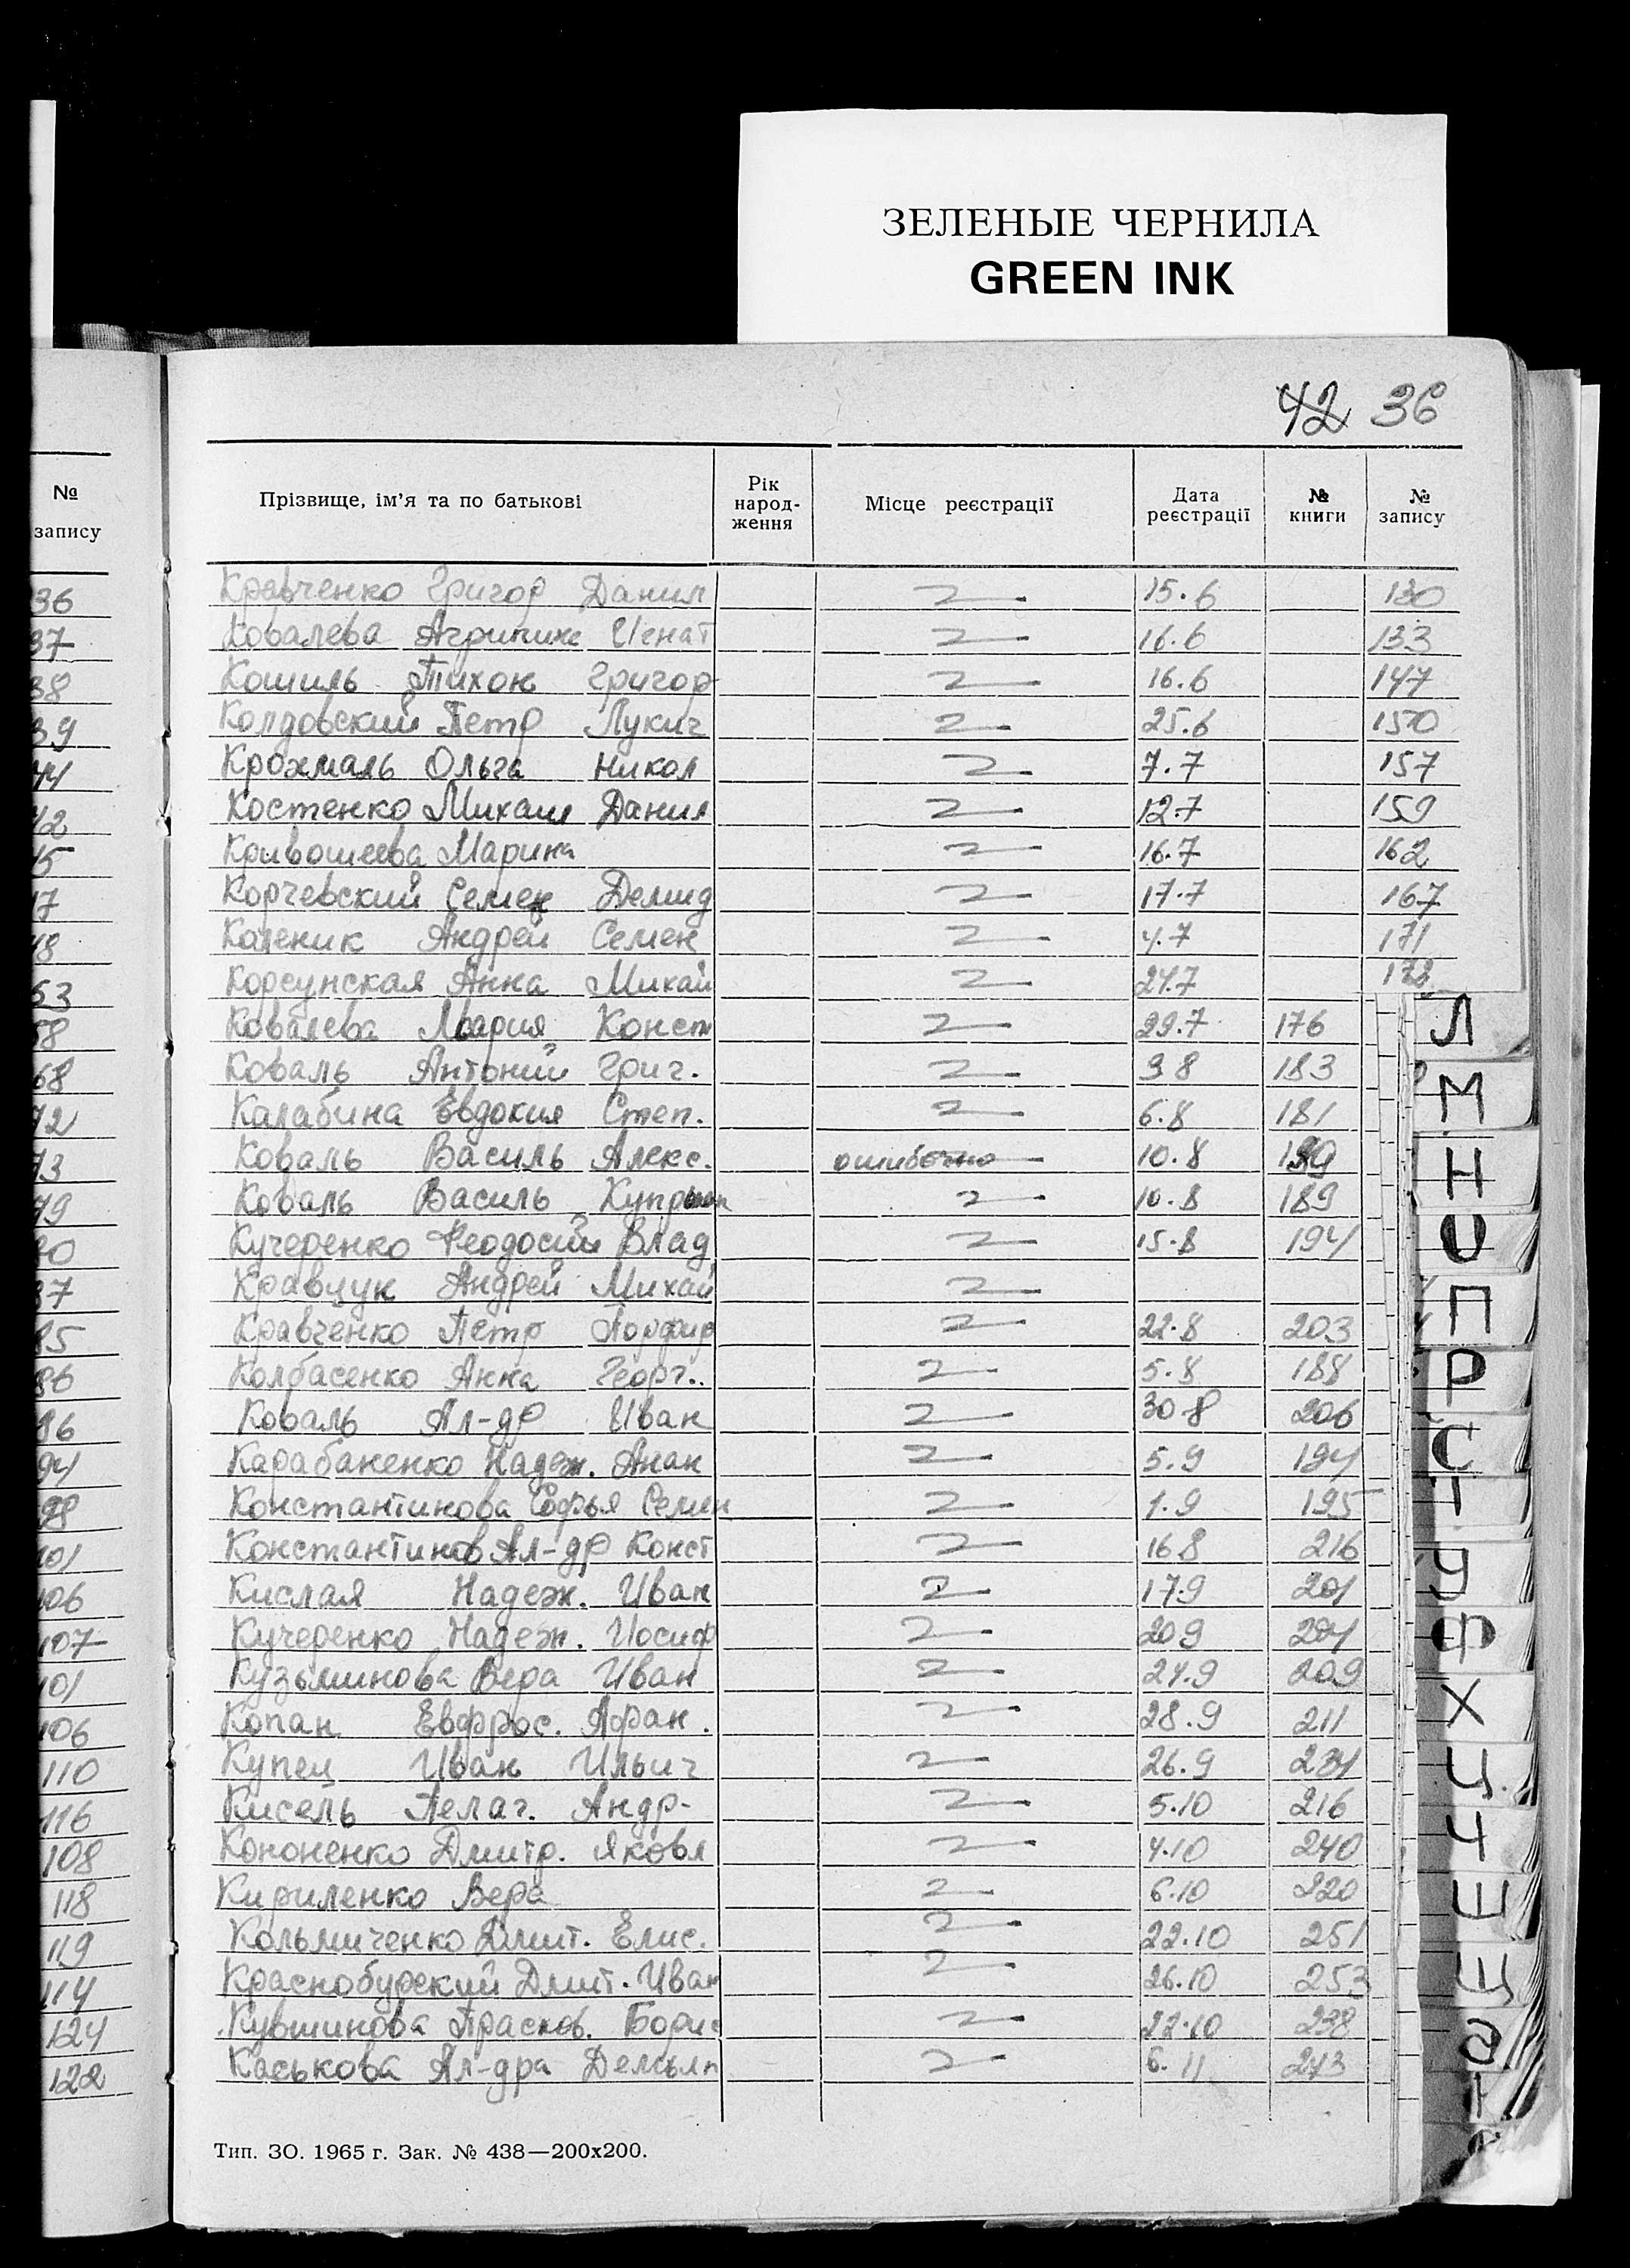 ЗЕЛЕНЫЕ ЧЕРНИЛА
GREEN INK
42 36
№ запису
Прізвище, ім'я та по батькові Рік народ- ження Місце реєстрації Дата реєстрації № книги № запису
36 Кравченко Григор Данил 15.6 130
37 Ковалева Агрипине Игнат 16.6 133
38 Кошиль Тихон Григор 16.6 147
39 Колдовский Петр Лукич 25.6 150
44 Крохмаль Ольга Никол 7.7 157
42 Костенко Михаил Данил 12.7 159
45 Кривошеева Марина 16.7 162
47 Корчевский Семен Демид 17.7 167
48 Каленик Андрей Семен 4.7 171
53 Корсунская Анна Михай 24.7 173
58 Ковалева Мария Конст 29.7 176
Л
68 Коваль Антоний Григ. 9 8 183
72 Калабина Евдокия Степ. 6.8 181
М
73 Коваль Василь Алекс. ошибочно 10.8 189
Н
79 Коваль Василь Куприян 10.8 189
80 Кучеренко Феодосий Влад 15.8 194
О
87 Кравчук Андрей Михай
85 Кравченко Петр Порфир 22.8 203
П
86 Колбасенко Анна Георг.. 5.8 188
Р
86 Коваль Ал-др Иван 30 8 206
94 Карабаненко Надеж. Анан 5.9 194
С
98 Константинова Софья Семен 1.9 195
Т
101 Константинов Ал-др Конст 16 8 216
106 Кислая Надеж. Иван 17.9 201
У
107 Кучеренко Надеж. Иосиф 20 9 204
Ф
101 Кузьминова Вера Иван 24.9 209
106 Копан Евфрос. Афан. 28.9 211
Х
110 Купец Иван Ильич 26.9 234
Ц
116 Кисель Пелаг. Андр- 5.10 216
108 Кононенко Дмитр. Яковл 4.10 240
Ч
118 Кириленко Вера 6.10 220
Ш
119 Кольмиченко Дмит. Елис. 22.10 251
114 Краснобурский Дмит. Иван 26.10 253
Щ
124 Кувшинова Прасков. Борис 22.10 238
122 Каськова Ал-дра Демьян 6.11 243
Тип. ЗО. 1965 г. Зак. № 438—200х200.